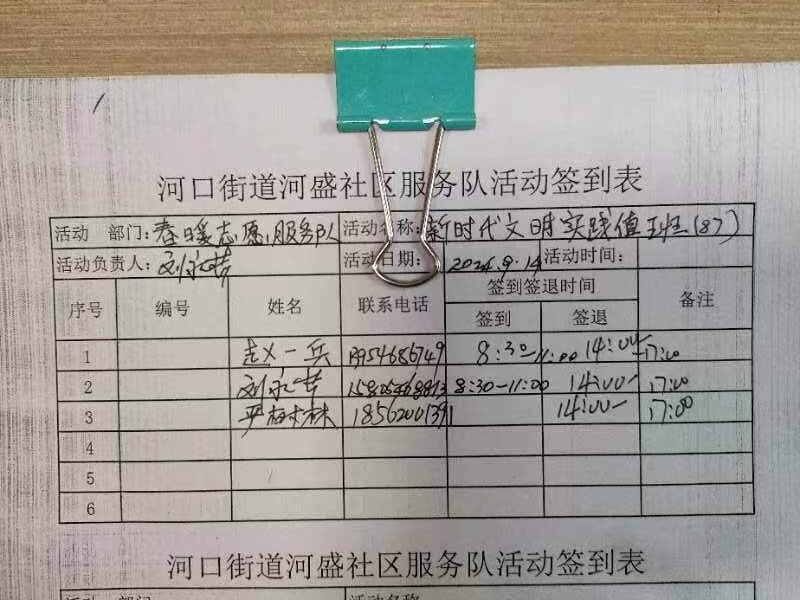 河口街道河盛社区服务队活动签到表
活动 部门：春暖志愿服务队 活动名称：新时代文明实践值班（87）
活动负责人：刘永芳 活动日期：2024.9.14 活动时间：
序号 编号 姓名 联系电话 签到签退时间 备注
签到 签退
1 赵一兵 13954685749 8:30-11:00 14:00-17:00
2 8:30-11:00 14:00-17:00
3 严树林 18562001391 14:00-17:00
4
5
6
河口街道河盛社区服务队活动签到表